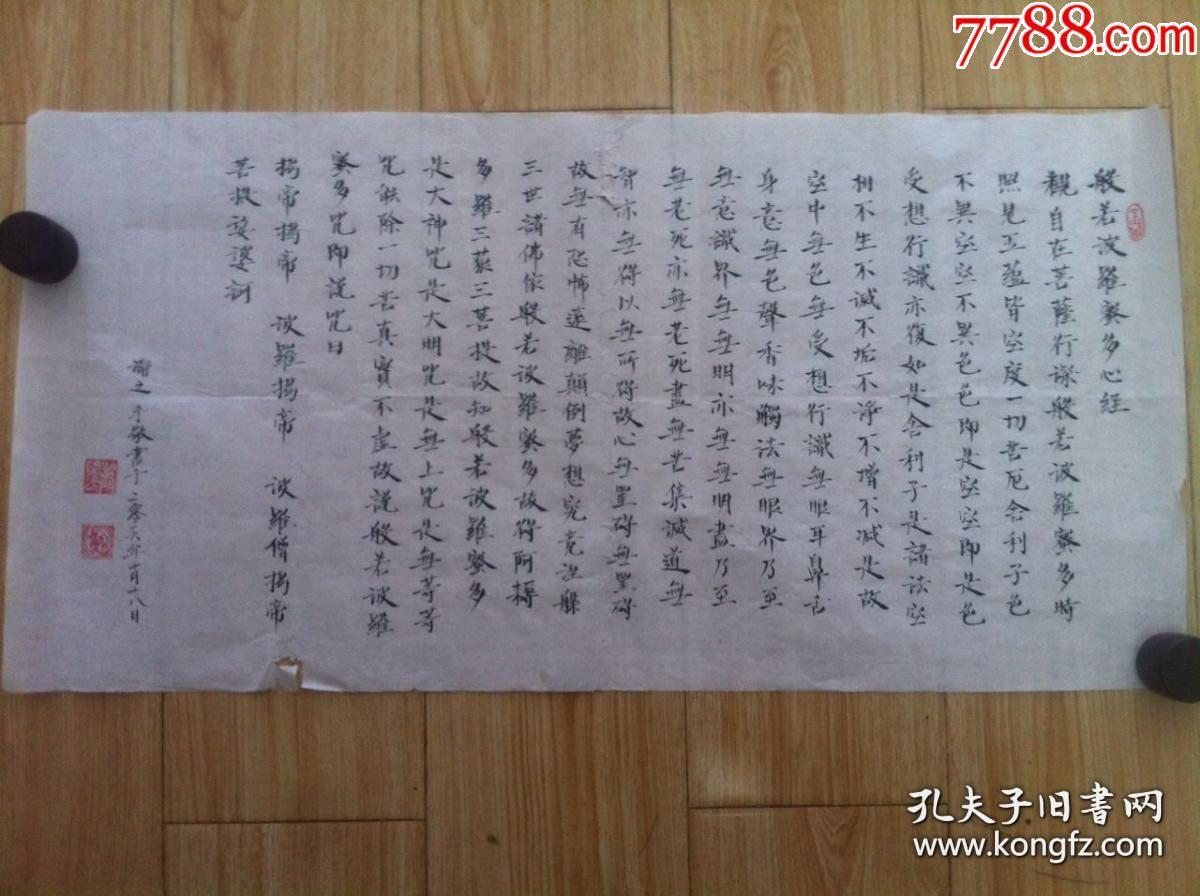 般若波羅蜜多心經
觀自在菩薩行深般若波羅蜜多時
照見五蘊皆空度一切苦厄舍利子色
不異空空不異色色即是空空即是色
受想行識亦復如是舍利子是諸法空
相不生不滅不垢不淨不增不减是故
空中無色無受想行識無眼耳鼻舌
身意無色聲香味觸法無眼界乃至
無意識界無無明亦無無明盡乃至
無老死亦無老死盡無苦集滅道無
智亦無得以無所得故心無罣碍無罣碍
故無有恐怖遠離顛倒夢想究竟涅槃
三世諸佛依般若波羅蜜多故得阿耨
多羅三藐三菩提故知般若波羅蜜多
是大神咒是大明咒是無上咒是無等等
咒能除一切苦真實不虛故說般若波羅
蜜多咒即說咒曰
揭帝揭帝 波羅揭帝 波羅僧揭帝
菩提娑婆訶
謝之 敬書于二零零六年十月十八日
7788.com
孔夫子旧書网
www.kongfz.com